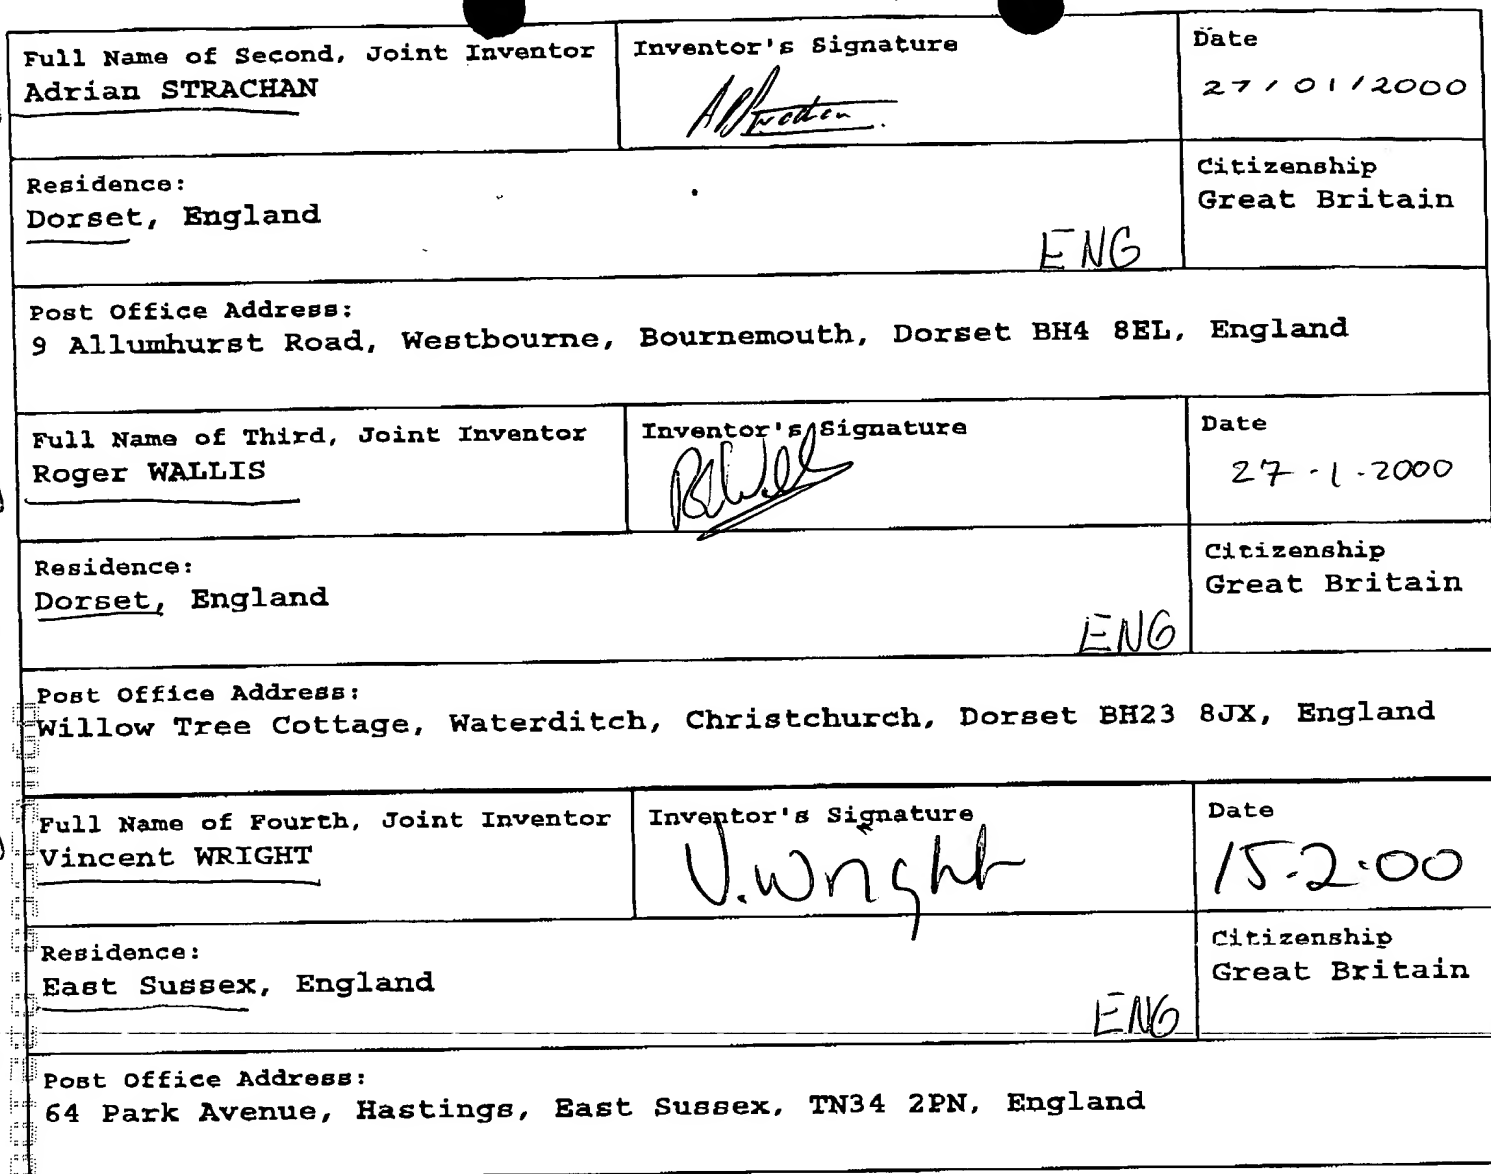 Full Name of Second, Joint Inventor
Adrian STRACHAN
Inventor's Signature
Date
27/01/2000
Residence:
Dorset, England
ENG
Citizenship
Great Britain
Post Office Address:
9 Allumhurst Road, Westbourne, Bournemouth, Dorset BH4 8EL, England
Full Name of Third, Joint Inventor
Roger WALLIS
Inventor's Signature
Date
27-1-2000
Residence:
Dorset, England
ENG
Citizenship
Great Britain
Post Office Address:
Willow Tree Cottage, Waterditch, Christchurch, Dorset BH23 8JX, England
Full Name of Fourth, Joint Inventor
Vincent WRIGHT
Inventor's Signature
V. Wright
Date
15.2.00
Residence:
East Sussex, England
ENG
Citizenship
Great Britain
Post Office Address:
64 Park Avenue, Hastings, East Sussex, TN34 2PN, England